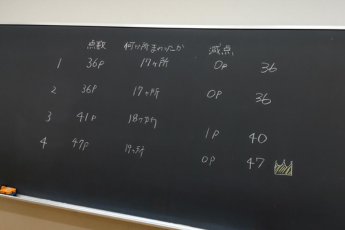 点数 何ヶ所まわったか 減点
1 36P 17ヶ所 0P 36
2 36P 17ヶ所 0P 36
3 41P 18ヶ所 1P 40
4 47P 17ヶ所 0P 47